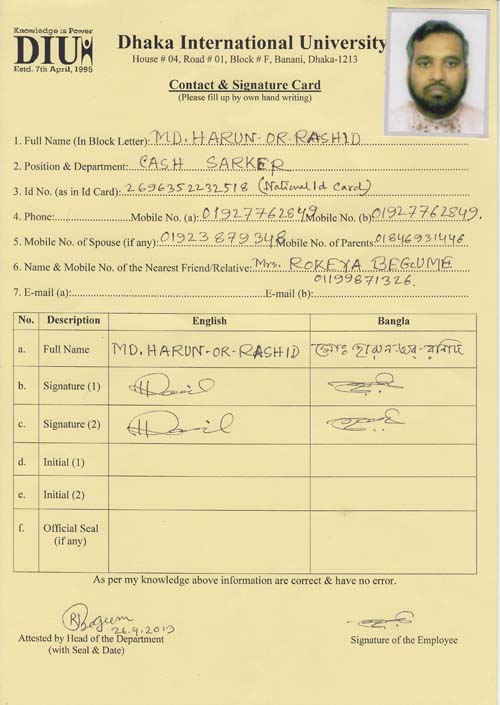 Knowledge is Power
DIU
Estd. 7th April, 1995
Dhaka International University
House # 04, Road # 01, Block # F, Banani, Dhaka-1213
Contact & Signature Card
(Please fill up by own hand writing)
1. Full Name (In Block Letter): MD. HARUN-OR-RASHID
2. Position & Department: CASH SARKER
3. Id No. (as in Id Card): 2696352232518 (National Id Card)
4. Phone: Mobile No. (a): 01927762849 Mobile No. (b) 01927762849.
5. Mobile No. of Spouse (if any): 01923879348 Mobile No. of Parents: 01846931446
6. Name & Mobile No. of the Nearest Friend/Relative: Mrs. ROKEYA BEGUME
01199871326.
7. E-mail (a): E-mail (b):
No. Description English Bangla
a. Full Name MD. HARUN-OR-RASHID মোঃ হারুন-অর-রশিদ
b. Signature (1)
c. Signature (2)
d. Initial (1)
e. Initial (2)
f. Official Seal
(if any)
As per my knowledge above information are correct & have no error.
RBegum
26.9.2013
Attested by Head of the Department
(with Seal & Date)
Signature of the Employee